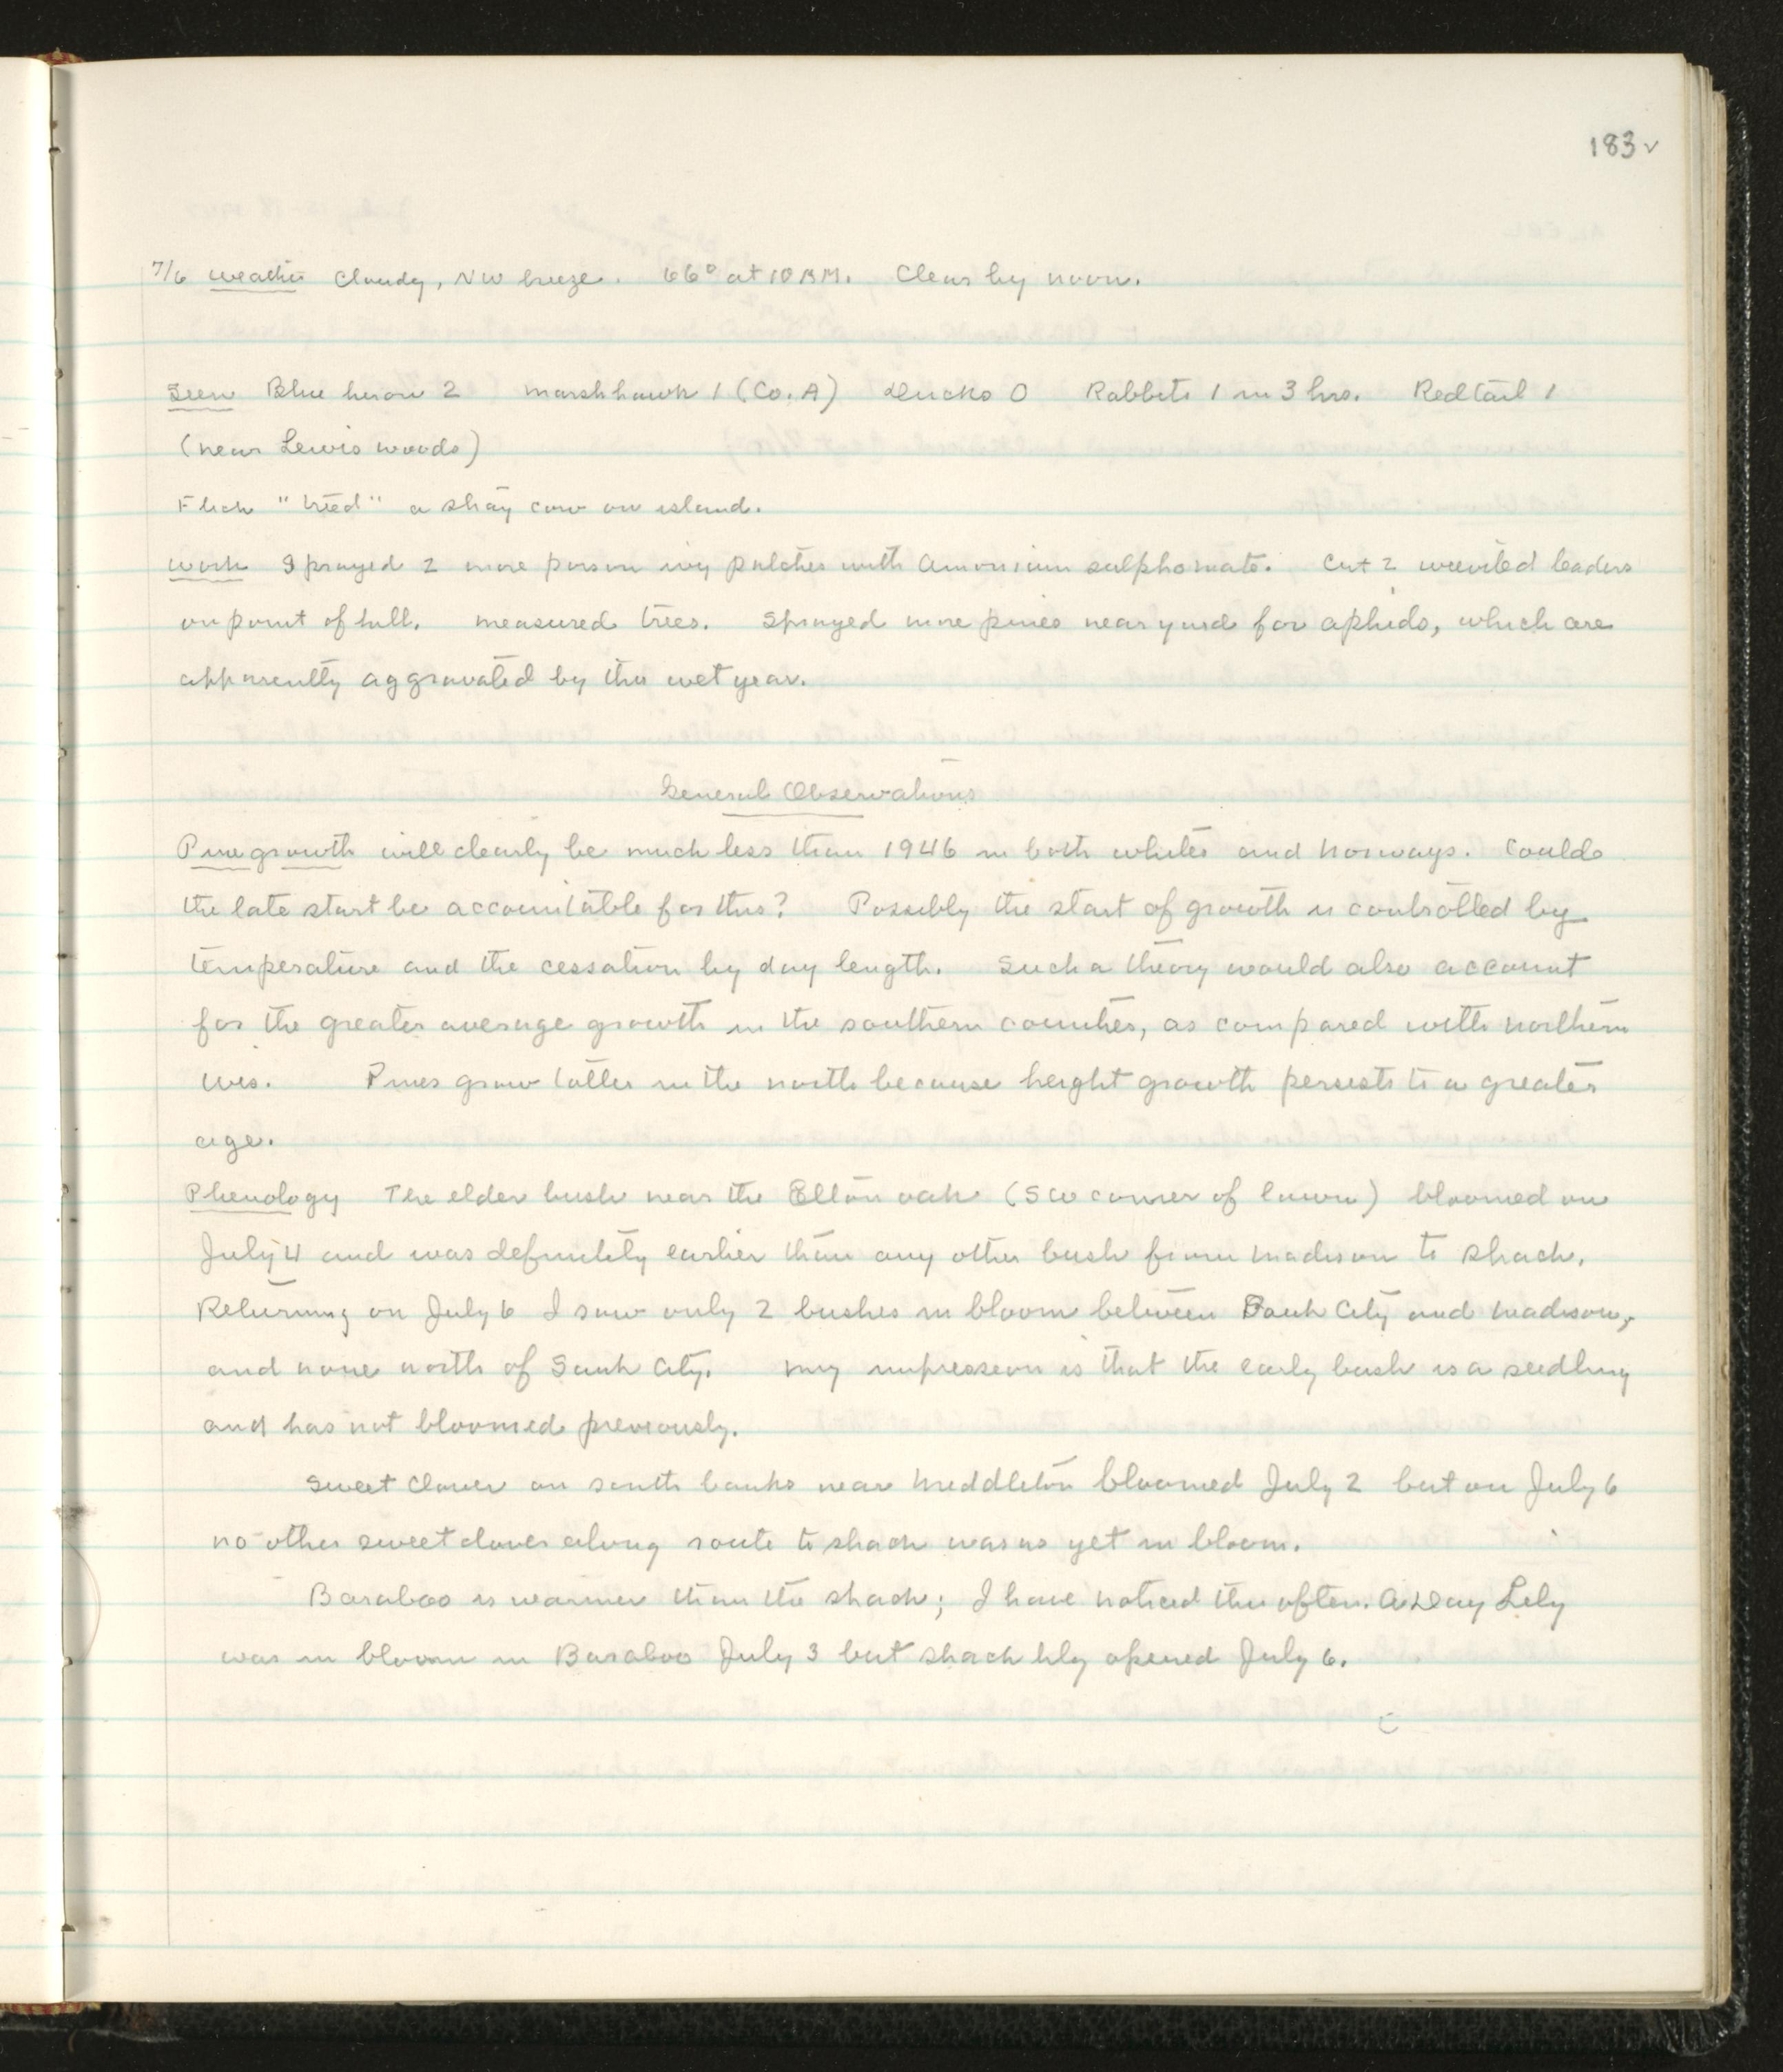 183 ✓
7/6 Weather Cloudy, NW breeze. 66° at 10 AM. Clear by noon.
Seen Blue heron 2 Marsh hawk 1 (Co. A) Ducks 0 Rabbits 1 in 3 hrs. Redtail 1
(near Lewis woods)
Flick "treed" a stray cow on island.
Work Sprayed 2 more poison ivy patches with Amonium sulphomate. Cut 2 weeviled leaders
on point of hill. Measured trees. Sprayed more pines near yard for aphids, which are
apparently aggravated by the wet year.
General Observations
Pine growth will clearly be much less than 1946 in both whites and Norways. Could
the late start be accountable for this? Possibly the start of growth is controlled by
temperature and the cessation by day length. Such a theory would also account
for the greater average growth in the southern counties, as compared with northern
Wis. Pines grow taller in the north because height growth persists to a greater
age.
Phenology The elder bush near the Elton oak (SW corner of lawn) bloomed on
July 4 and was definitely earlier than any other bush from Madison to shack.
Returning on July 6 I saw only 2 bushes in bloom between Sauk City and Madison,
and none north of Sauk City. My impression is that the early bush is a seedling
and has not bloomed previously.
Sweet Clover on south banks near Middleton bloomed July 2 but on July 6
no other sweet clover along route to shack was as yet in bloom.
Baraboo is warmer than the shack; I have noticed this often. A Day Lily
was in bloom in Baraboo July 3 but shack lily opened July 6.